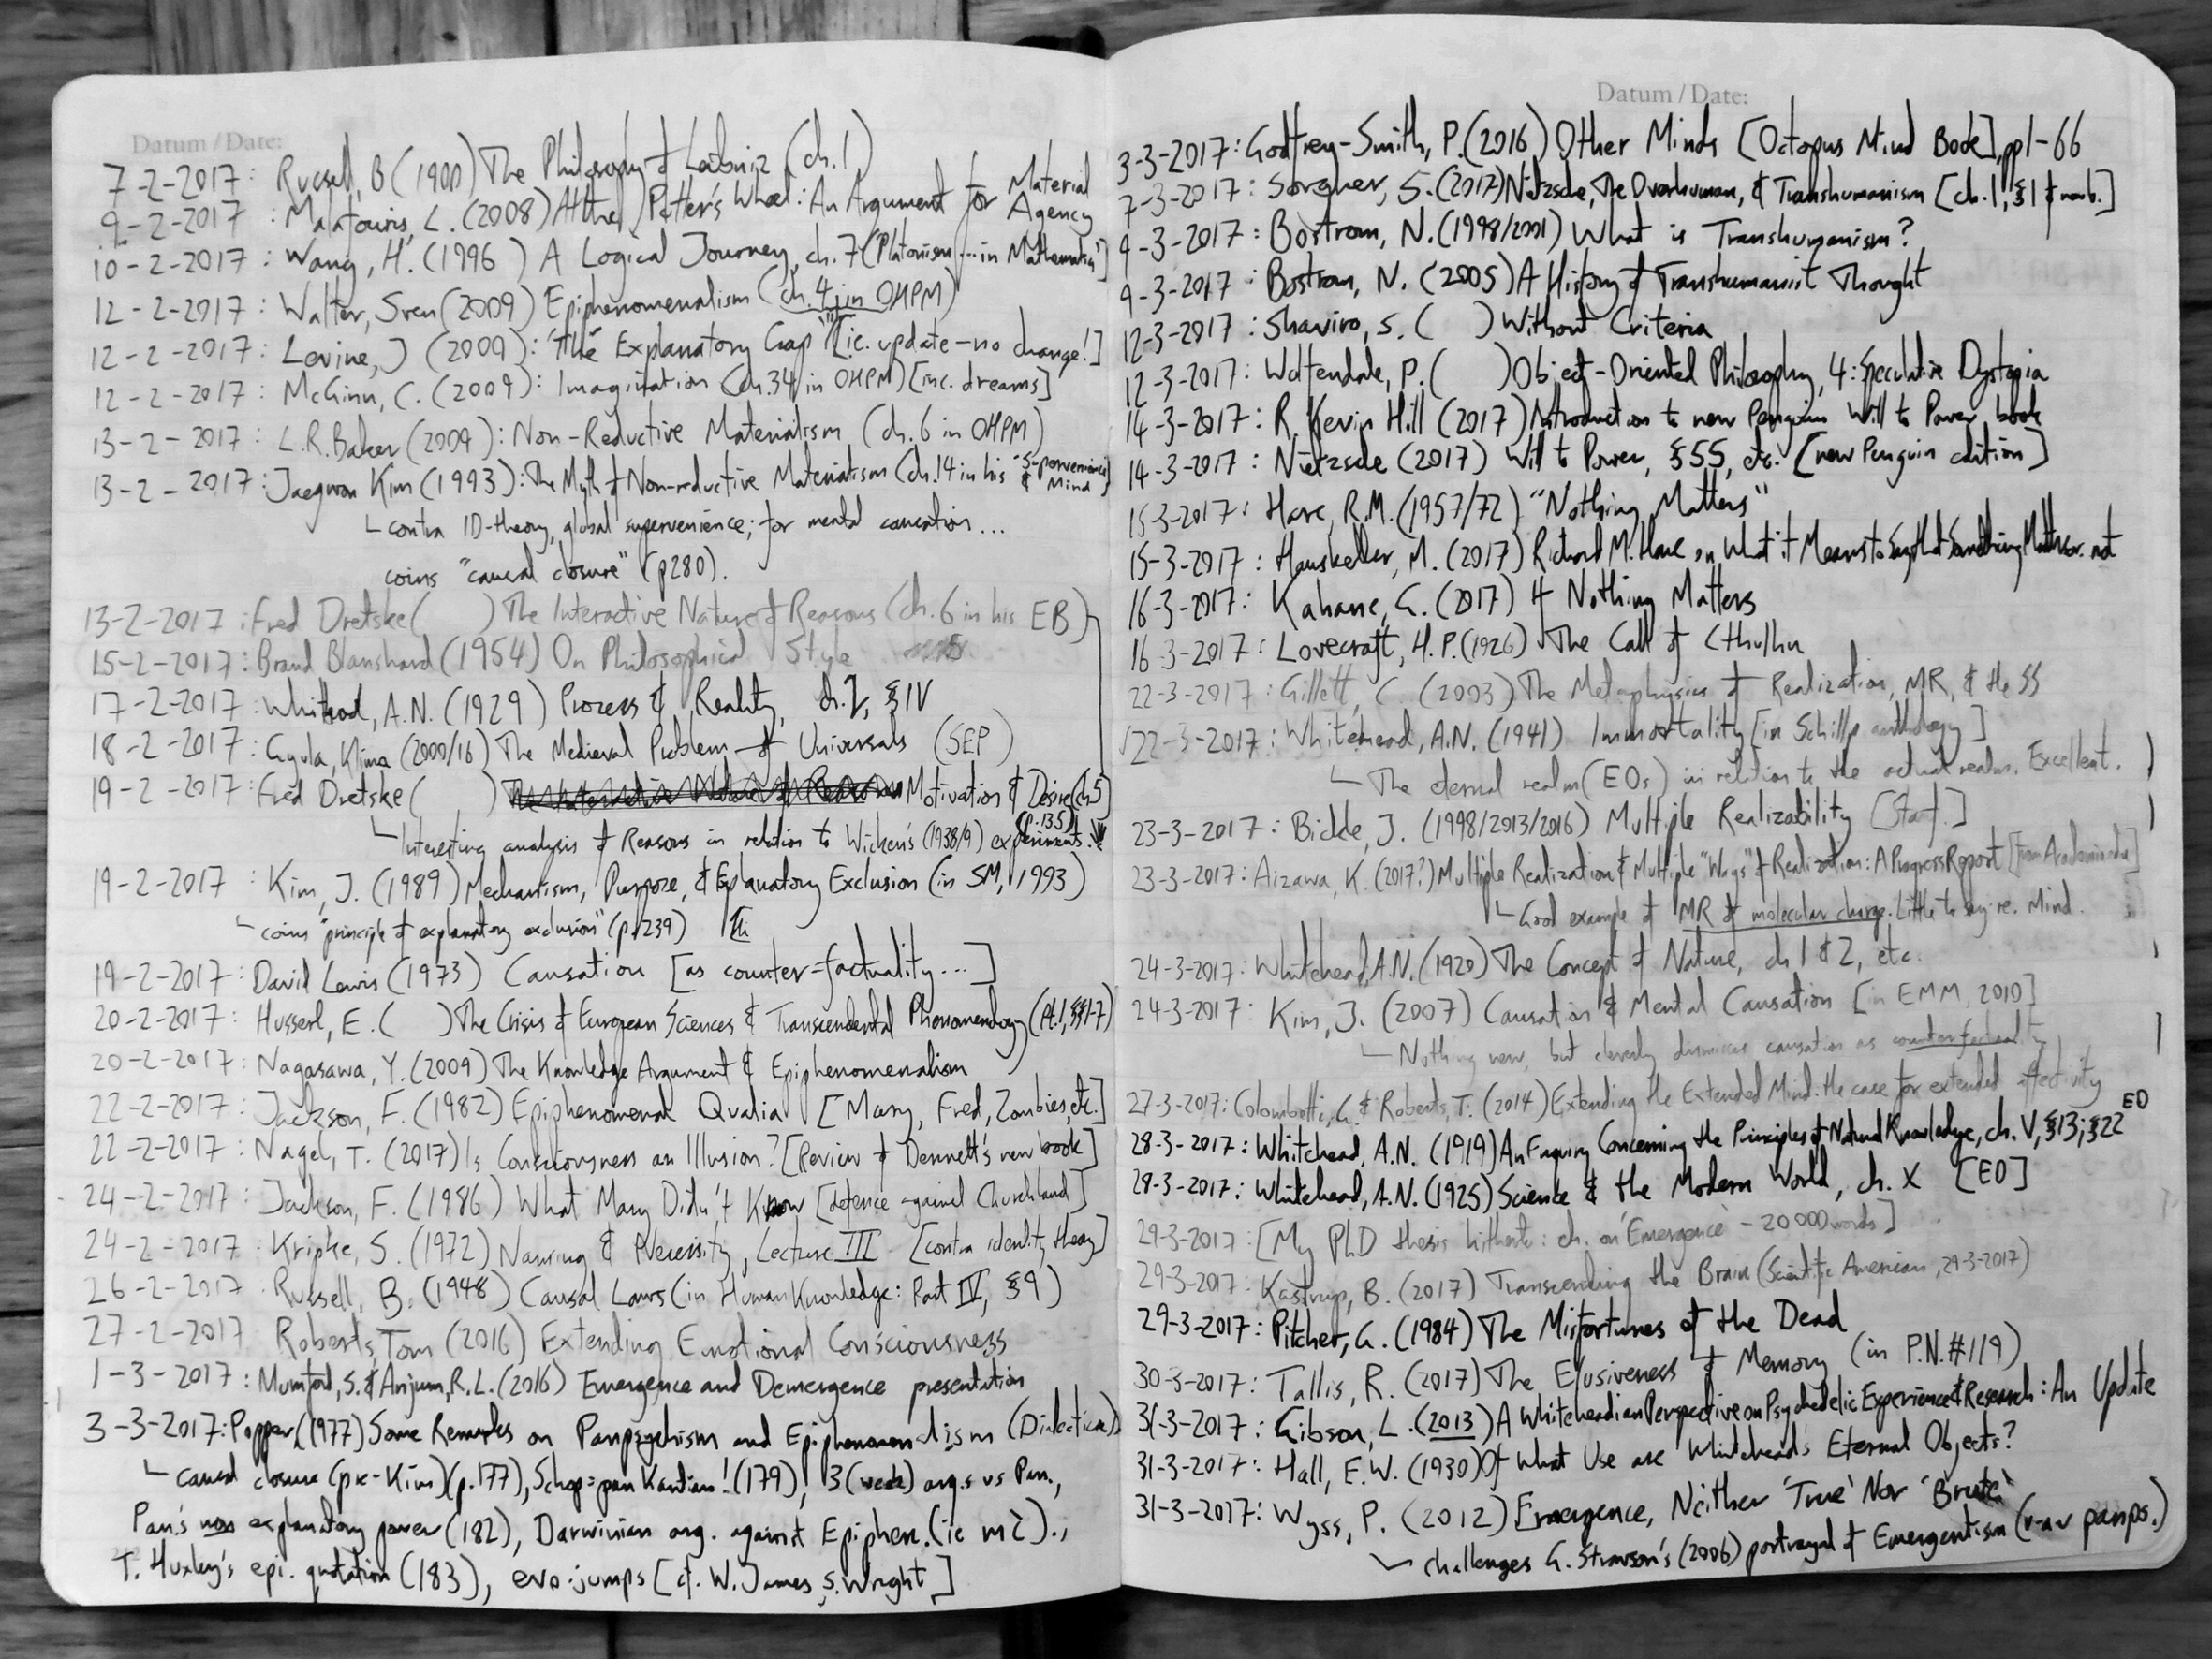 Datum / Date:
7-2-2017: Russell, B (1900) The Philosophy of Leibniz (ch.1)
9-2-2017: Malafouris, L. (2008) At the Potter's Wheel: An Argument for Material Agency
10-2-2017: Wang, H. (1996) A Logical Journey, ch.7 ("Platonism ... in Mathematics")
12-2-2017: Walter, Sven (2009) Epiphenomenalism (ch.4 in OHPM)
12-2-2017: Levine, J (2009): "The Explanatory Gap" [ie. update – no change!]
12-2-2017: McGinn, C. (2009): Imagination (ch.34 in OHPM) [inc. dreams]
13-2-2017: L.R. Baker (2009): Non-Reductive Materialism (ch.6 in OHPM)
13-2-2017: Jaegwon Kim (1993): The Myth of Non-reductive Materialism (ch.14 in his "Supervenience & Mind
contra ID-theory, global supervenience; for mental causation ...
coins "causal closure" (p280).
13-2-2017: Fred Dretske ( ) The Interactive Nature of Reasons (ch.6 in his EB)
15-2-2017: Brand Blanshard (1954) On Philosophical Style
17-2-2017: Whitehead, A.N. (1929) Process & Reality, ch. §IV
18-2-2017: Gyula, Klima (2000/16) The Medieval Problem of Universals (SEP)
19-2-2017: Fred Dretske ( ) The Interactive Nature of Reasons Motivation & Desire (ch5)
Interesting analysis of Reasons in relation to Wicken's (1938/9) experiments. (p.135)
19-2-2017: Kim, J. (1989) Mechanism, Purpose, & Explanatory Exclusion (in SM, 1993)
coins "principle of explanatory exclusion" (p.239)
19-2-2017: David Lewis (1973) Causation [as counter-factuality ...]
20-2-2017: Husserl, E. ( ) The Crisis of European Sciences & Transcendental Phenomenology (Pt.1, §§1-7)
20-2-2017: Nagasawa, Y. (2009) The Knowledge Argument & Epiphenomenalism
22-2-2017: Jackson, F. (1982) Epiphenomenal Qualia [Mary, Fred, Zombies, etc.]
22-2-2017: Nagel, T. (2017) Is Consciousness an Illusion? [Review of Dennett's new book]
24-2-2017: Jackson, F. (1986) What Mary Didn't Know [defence against Churchland]
24-2-2017: Kripke, S. (1972) Naming & Necessity, Lecture III [contra identity theory]
26-2-2017: Russell, B. (1948) Causal Laws (in Human Knowledge: Part IV, §9)
27-2-2017: Roberts, Tom (2016) Extending Emotional Consciousness
1-3-2017: Mumford, S. & Anjum, R.L. (2016) Emergence and Demergence presentation
3-3-2017: Popper, (1977) Some Remarks on Panpsychism and Epiphenomenalism (Dialectica)
causal closure (pre-Kim) (p.177), Schop = pan Kantian! (179), 3 (weak) args vs Pan.,
Pan's non explanatory power (182), Darwinian arg. against Epiphen. (ie m c).,
T. Huxley's epi. quotation (183), evo-jumps [cf. W. James, S. Wright]
Datum / Date:
3-3-2017: Godfrey-Smith, P. (2016) Other Minds [Octopus Mind Book], pp1-66
7-3-2017: Sorgner, S. (2017) Nietzsche, The Overhuman, & Transhumanism [ch.1, §1
9-3-2017: Bostrom, N. (1998/2001) What is Transhumanism?
9-3-2017: Bostrom, N. (2005) A History of Transhumanist Thought
12-3-2017: Shaviro, S. ( ) Without Criteria
12-3-2017: Wolfendale, P. ( ) Object-Oriented Philosophy, 4: Speculative Dystopia
14-3-2017: R. Kevin Hill (2017) Introduction to new Penguin Will to Power book
14-3-2017: Nietzsche (2017) Will to Power, §55, etc. [new Penguin edition]
15-3-2017: Hare, R.M. (1957/72) "Nothing Matters"
15-3-2017: Hauskeller, M. (2017) Richard M. Hare on What it Means to Say that Something Matters or not
16-3-2017: Kahane, G. (2017) If Nothing Matters
16-3-2017: Lovecraft, H.P. (1926) The Call of Cthulhu
22-3-2017: Gillett, C. (2003) The Metaphysics of Realization, MR, & the SS
22-3-2017: Whitehead, A.N. (1941) Immortality [in Schilpp anthology]
The eternal realm (EOs) in relation to the actual realm. Excellent.
23-3-2017: Bickle, J. (1998/2013/2016) Multiple Realizability [Stanf.]
23-3-2017: Aizawa, K. (2017?) Multiple Realization & Multiple "Ways" of Realization: A Progress Report [from Academia.edu]
Good example of MR of molecular change. Little to say re. Mind.
24-3-2017: Whitehead, A.N. (1920) The Concept of Nature, ch 1 & 2, etc.
24-3-2017: Kim, J. (2007) Causation & Mental Causation [in EMM, 2010]
Nothing new, but cleverly dismisses causation as counterfactuality
27-3-2017: Colombetti, G. & Roberts, T. (2014) Extending the Extended Mind: the case for extended affectivity
28-3-2017: Whitehead, A.N. (1919) An Enquiry Concerning the Principles of Natural Knowledge, ch. V, §13; §22 EO
28-3-2017: Whitehead, A.N. (1925) Science & the Modern World, ch. X [EO]
29-3-2017: [My PhD thesis hitherto: ch. on 'Emergence' – 20000 words]
29-3-2017: Kastrup, B. (2017) Transcending the Brain (Scientific American, 29-3-2017)
29-3-2017: Pitcher, G. (1984) The Misfortunes of the Dead
30-3-2017: Tallis, R. (2017) The Elusiveness of Memory (in P.N. #119)
31-3-2017: Gibson, L. (2013) A Whiteheadian Perspective on Psychedelic Experience & Research: An Update
31-3-2017: Hall, E.W. (1930) Of What Use are Whitehead's Eternal Objects?
31-3-2017: Wyss, P. (2012) Emergence, Neither 'True' Nor 'Brute'
challenges G. Strawson's (2006) portrayal of Emergentism (v-a-v panps.)